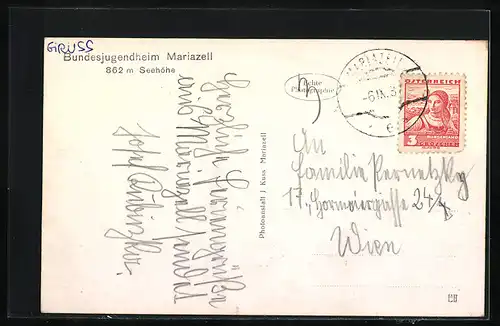 GRUSS
Bundesjugendheim Mariazell
862 m Seehöhe
Echte
Photographie
MARIAZELL
-6.IX.3
e
ÖSTERREICH
3 GROSCHEN
An
Familie Pernetzky
17., Hormayrgasse 24/
Wien
Photoanstalt J. Kuss Mariazell
Herzliche
aus Mariazell sendet